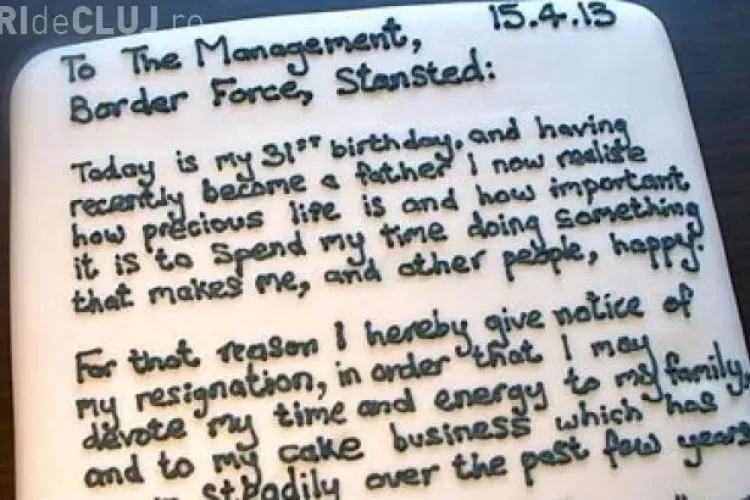 RIdeCLUJ.ro
15.4.13
To The Management,
Border Force, Stansted:
Today is my 31ST birthday, and having
recently become a father I now realise
how precious life is and how important
it is to spend my time doing something
that makes me, and other people, happy.
For that reason I hereby give notice of
my resignation, in order that I may
devote my time and energy to my family,
and to my cake business which has
steadily over the past few years